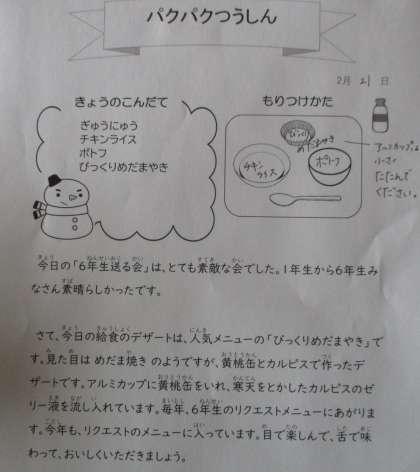 パクパクつうしん
2月 21 日
きょうのこんだて
ぎゅうにゅう
チキンライス
ポトフ
びっくりめだまやき
もりつけかた
びっくり
めだまやき
チキン
ライス
ポトフ
アルミカップは
小さく
たたんで
ください。
今日の「6年生送る会」は、とても素敵な会でした。1年生から6年生み
なさん素晴らしかったです。
さて、今日の給食のデザートは、人気メニューの「びっくりめだまやき」で
す。見た目は めだま焼き のようですが、黄桃缶とカルピスで作ったデ
ザートです。アルミカップに黄桃缶をいれ、寒天をとかしたカルピスのゼ
リー液を流し入れています。毎年、6年生のリクエストメニューにあがりま
す。今年も、リクエストのメニューに入っています。目で楽しんで、舌で味
わって、おいしくいただきましょう。